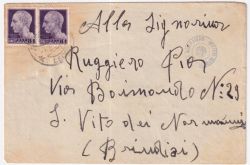 Alla Signorina
Ruggiero Pia
Via Bonmondo No 29
S. Vito dei Normanni
(Brindisi)